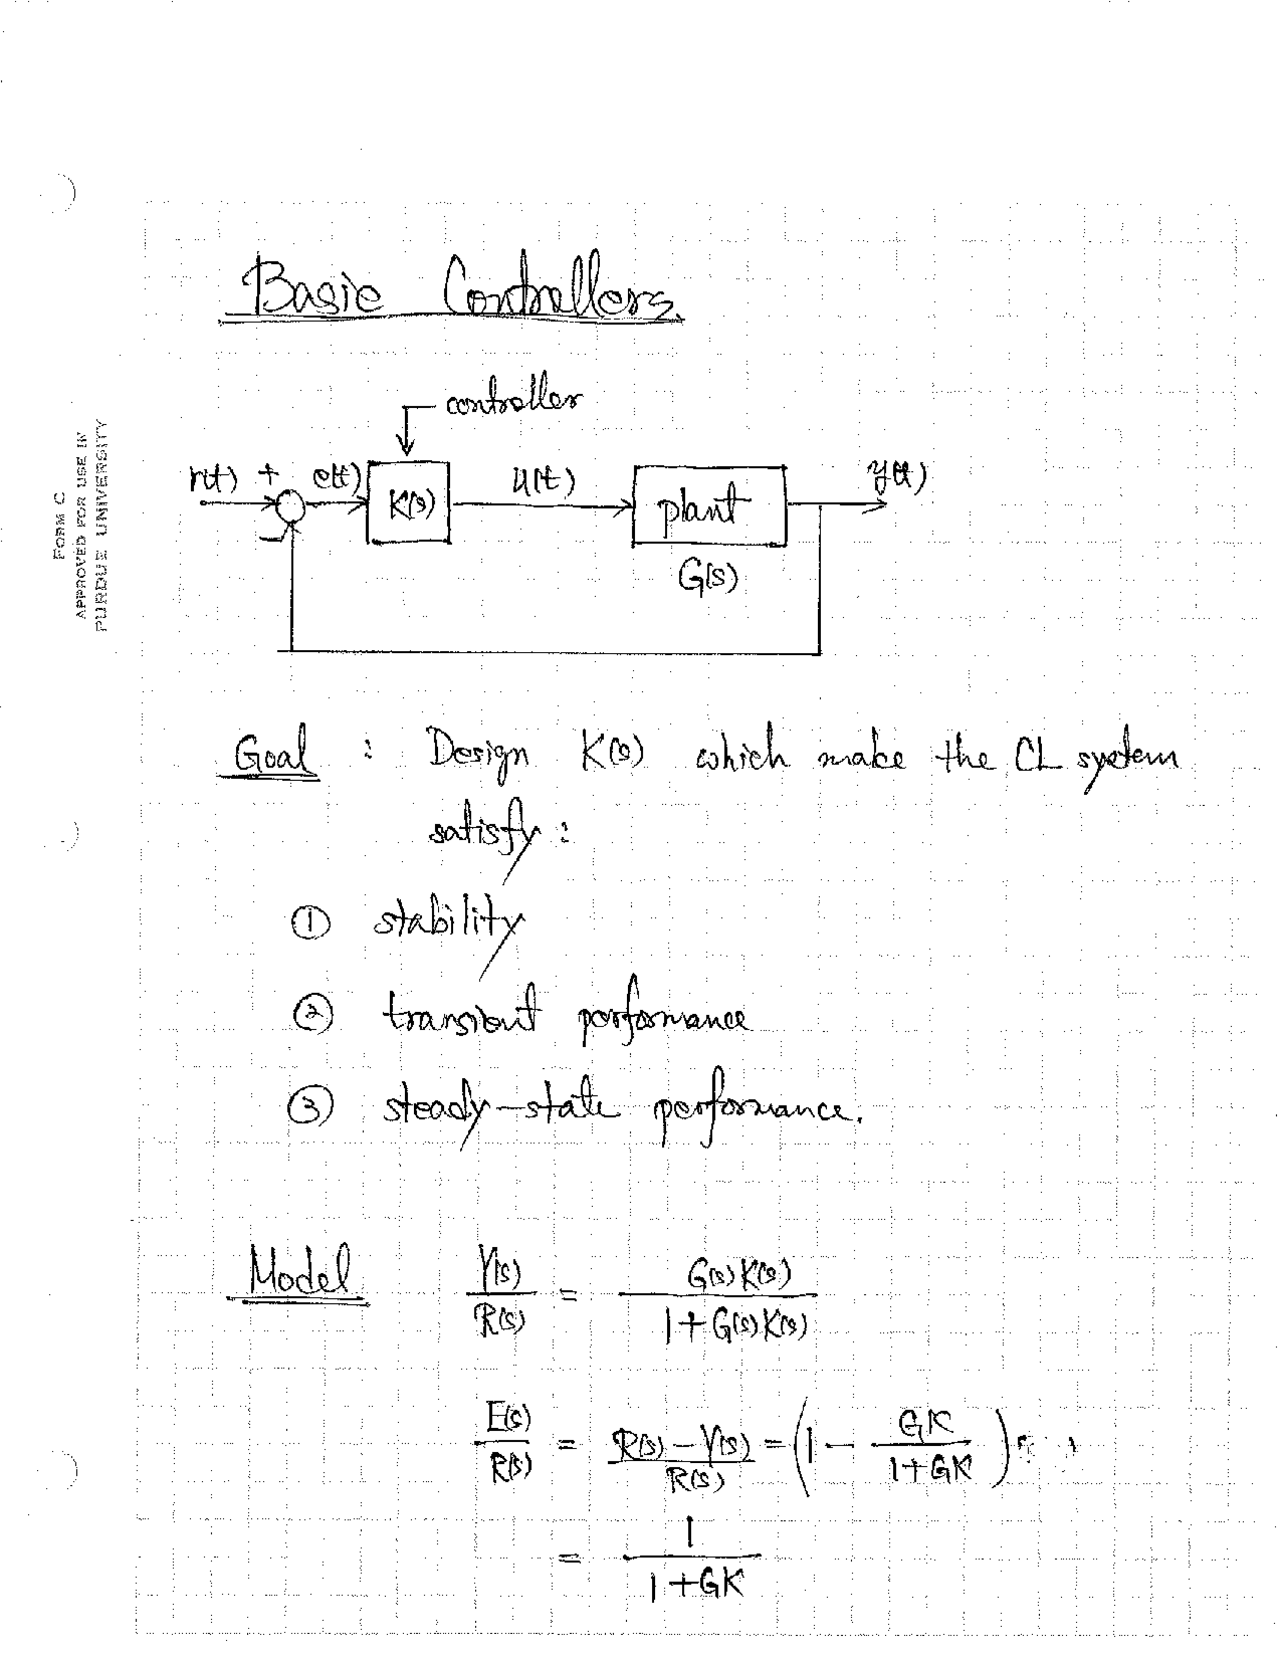 FORM C
APPROVED FOR USE IN
PURDUE UNIVERSITY
Basic Controllers.
controller
r(t) + e(t) K(s) u(t) plant y(t)
−
G(s)
Goal : Design K(s) which make the CL system
satisfy :
① stability
② transient performance
③ steady-state performance.
Model Y(s)/R(s) = G(s)K(s)/1+G(s)K(s)
E(s)/R(s) = R(s)−Y(s)/R(s) = (1 − GK/1+GK)
= 1/1+GK